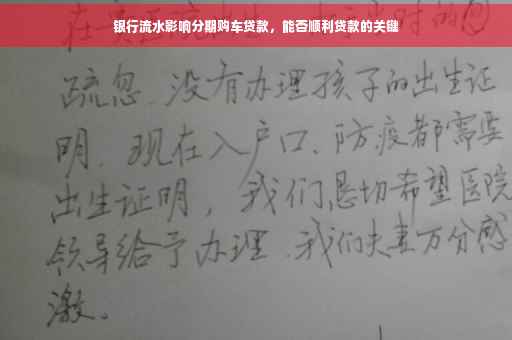 银行流水影响分期购车贷款，能否顺利贷款的关键
疏忽.没有办理孩子的出生证
明.现在入户口、防疫都需要
出生证明，我们恳切希望医院
领导给予办理.我们夫妻万分感
激。